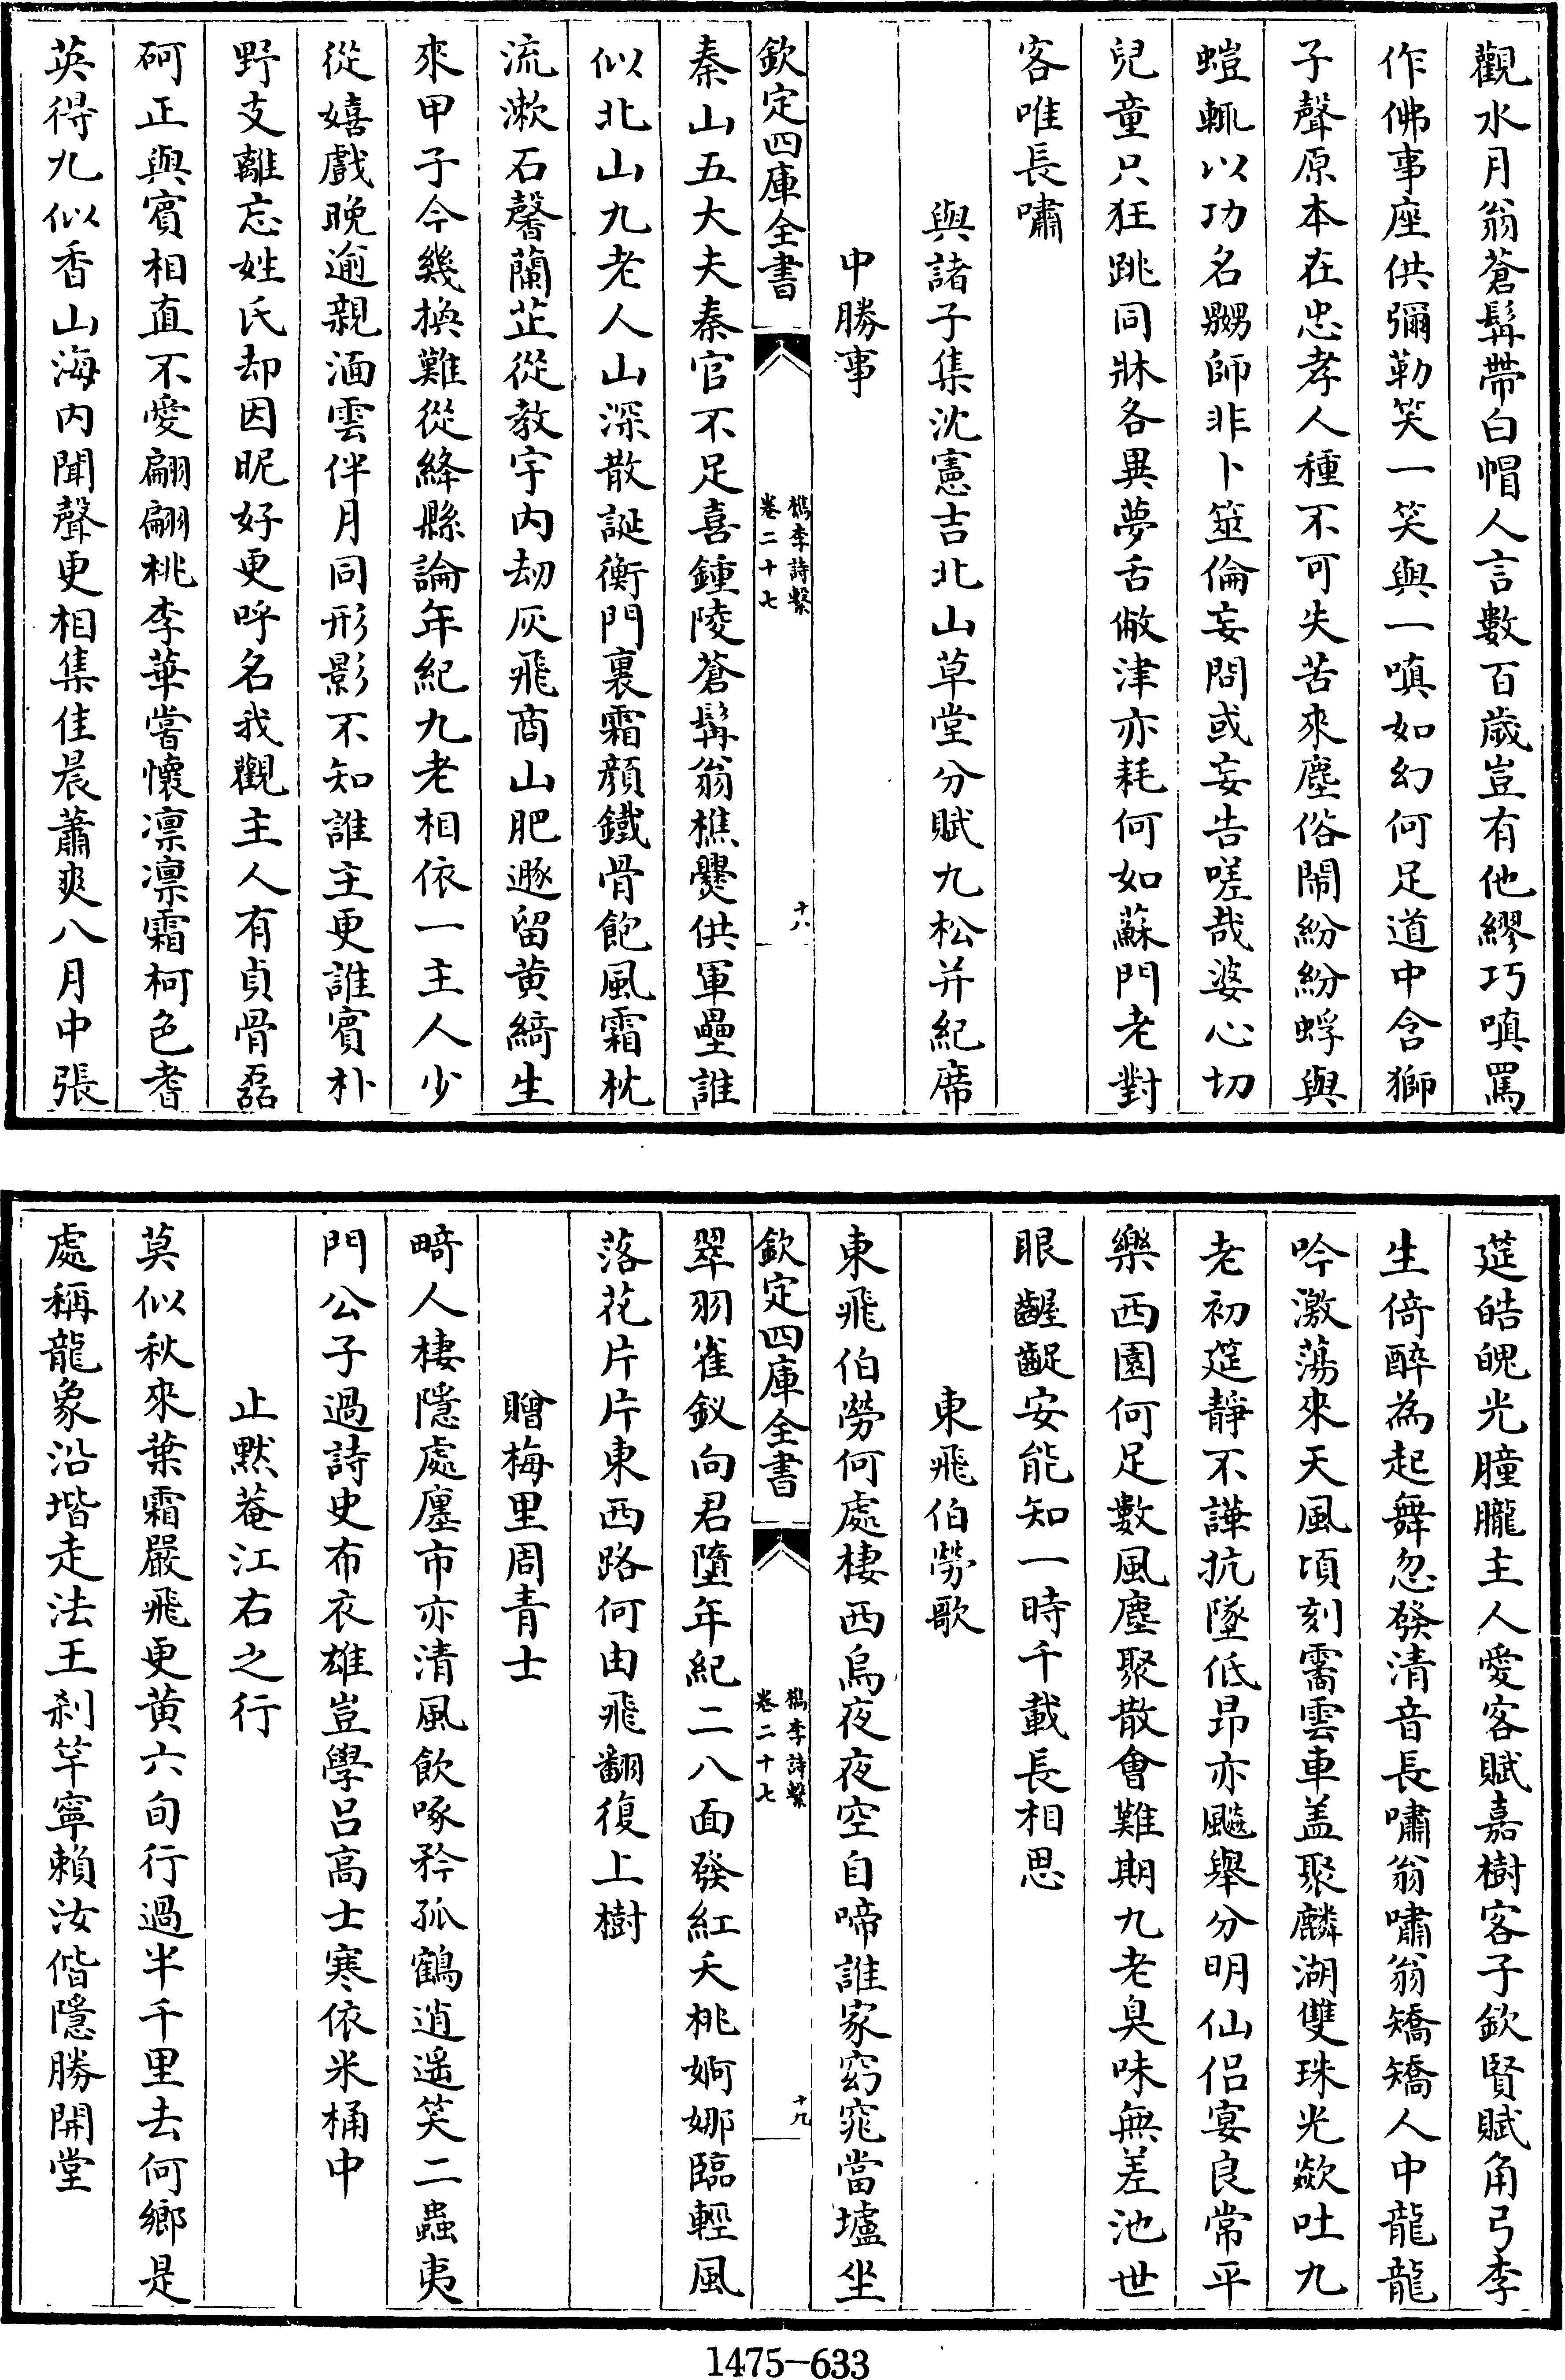 觀水月翁蒼髯帶白帽人言數百歲豈有他繆巧嗔罵
作佛事座供彌勒笑一笑與一嗔如幻何足道中含獅
子聲原本在忠孝人種不可失苦來塵俗鬧紛紛蜉與
螘輒以功名嬲師非卜筮倫妄問或妄告嗟哉婆心切
兒童只狂跳同牀各異夢舌敝津亦耗何如蘇門老對
客唯長嘯
與諸子集沈憲吉北山草堂分賦九松并紀席
中勝事
欽定四庫全書
檇李詩繫
卷二十七
十八
秦山五大夫秦官不足喜鍾陵蒼髯翁樵爨供軍壘誰
似北山九老人山深散誕衡門裏霜顔鐵骨飽風霜枕
流漱石馨蘭芷從教宇内刼灰飛商山肥遯留黄綺生
來甲子今幾換難從絳縣論年紀九老相依一主人少
從嬉戲晩逾親湎雲伴月同形影不知誰主更誰賓朴
野支離忘姓氏却因昵好更呼名我觀主人有貞骨磊
砢正與賓相直不愛翩翩桃李華嘗懷凛凛霜柯色耆
英得九似香山海内聞聲更相集佳晨蕭爽八月中張
筵皓魄光朣朧主人愛客賦嘉樹客子欽賢賦角弓李
生倚醉為起舞忽發清音長嘯翁嘯翁矯矯人中龍龍
吟激蕩來天風頃刻霱雲車盖聚麟湖雙珠光歘吐九
老初筵静不譁抗墜低昂亦飈舉分明仙侣宴良常平
樂西園何足數風塵聚散會難期九老臭味無差池世
眼齷齪安能知一時千載長相思
東飛伯勞歌
東飛伯勞何處棲西烏夜夜空自啼誰家窈窕當壚坐
欽定四庫全書
檇李詩繫
卷二十七
十九
翠羽雀釵向君墮年紀二八面發紅夭桃婀娜臨輕風
落花片片東西路何由飛翻復上樹
贈梅里周青士
畸人棲隱處廛市亦清風飲啄矜孤鶴逍遥笑二蟲夷
門公子過詩史布衣雄豈學吕高士寒依米桶中
止黙菴江右之行
莫似秋來葉霜嚴飛更黄六旬行過半千里去何鄉是
處稱龍象沿堦走法王刹竿寧賴汝偕隱勝開堂
1475-633